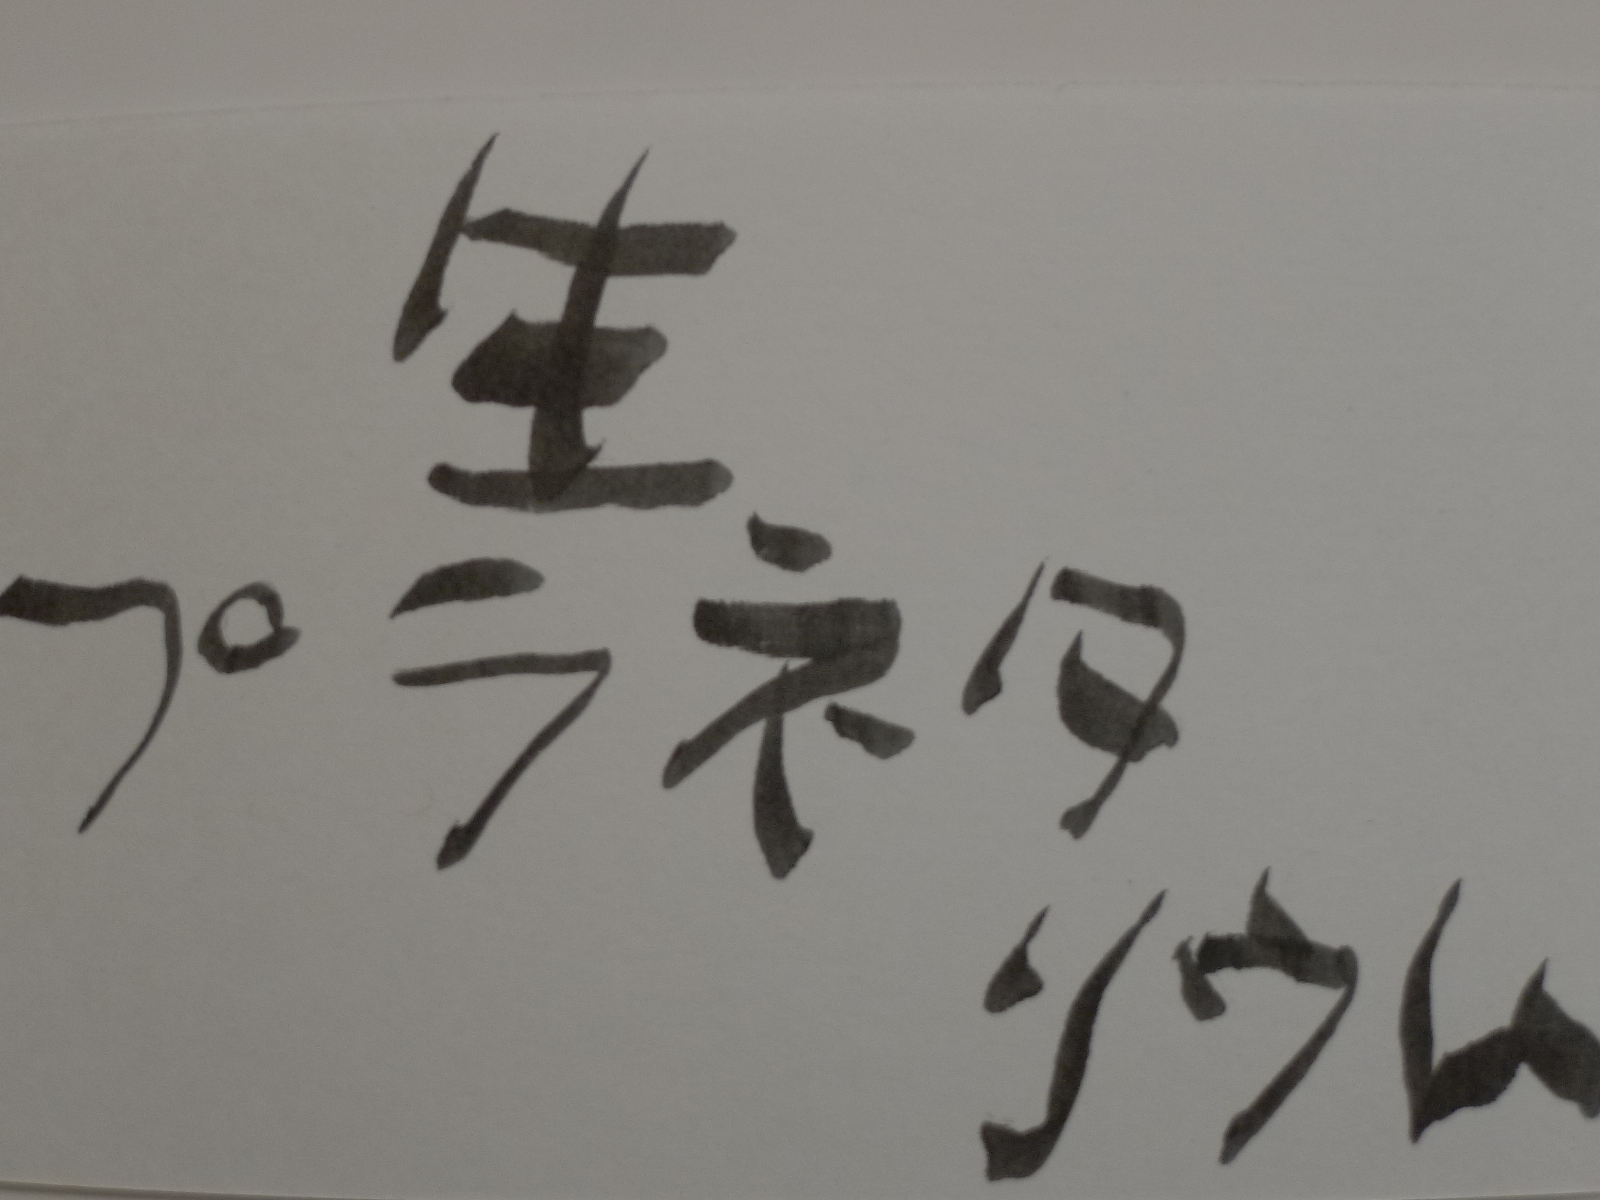 生
プラネタ
リウム